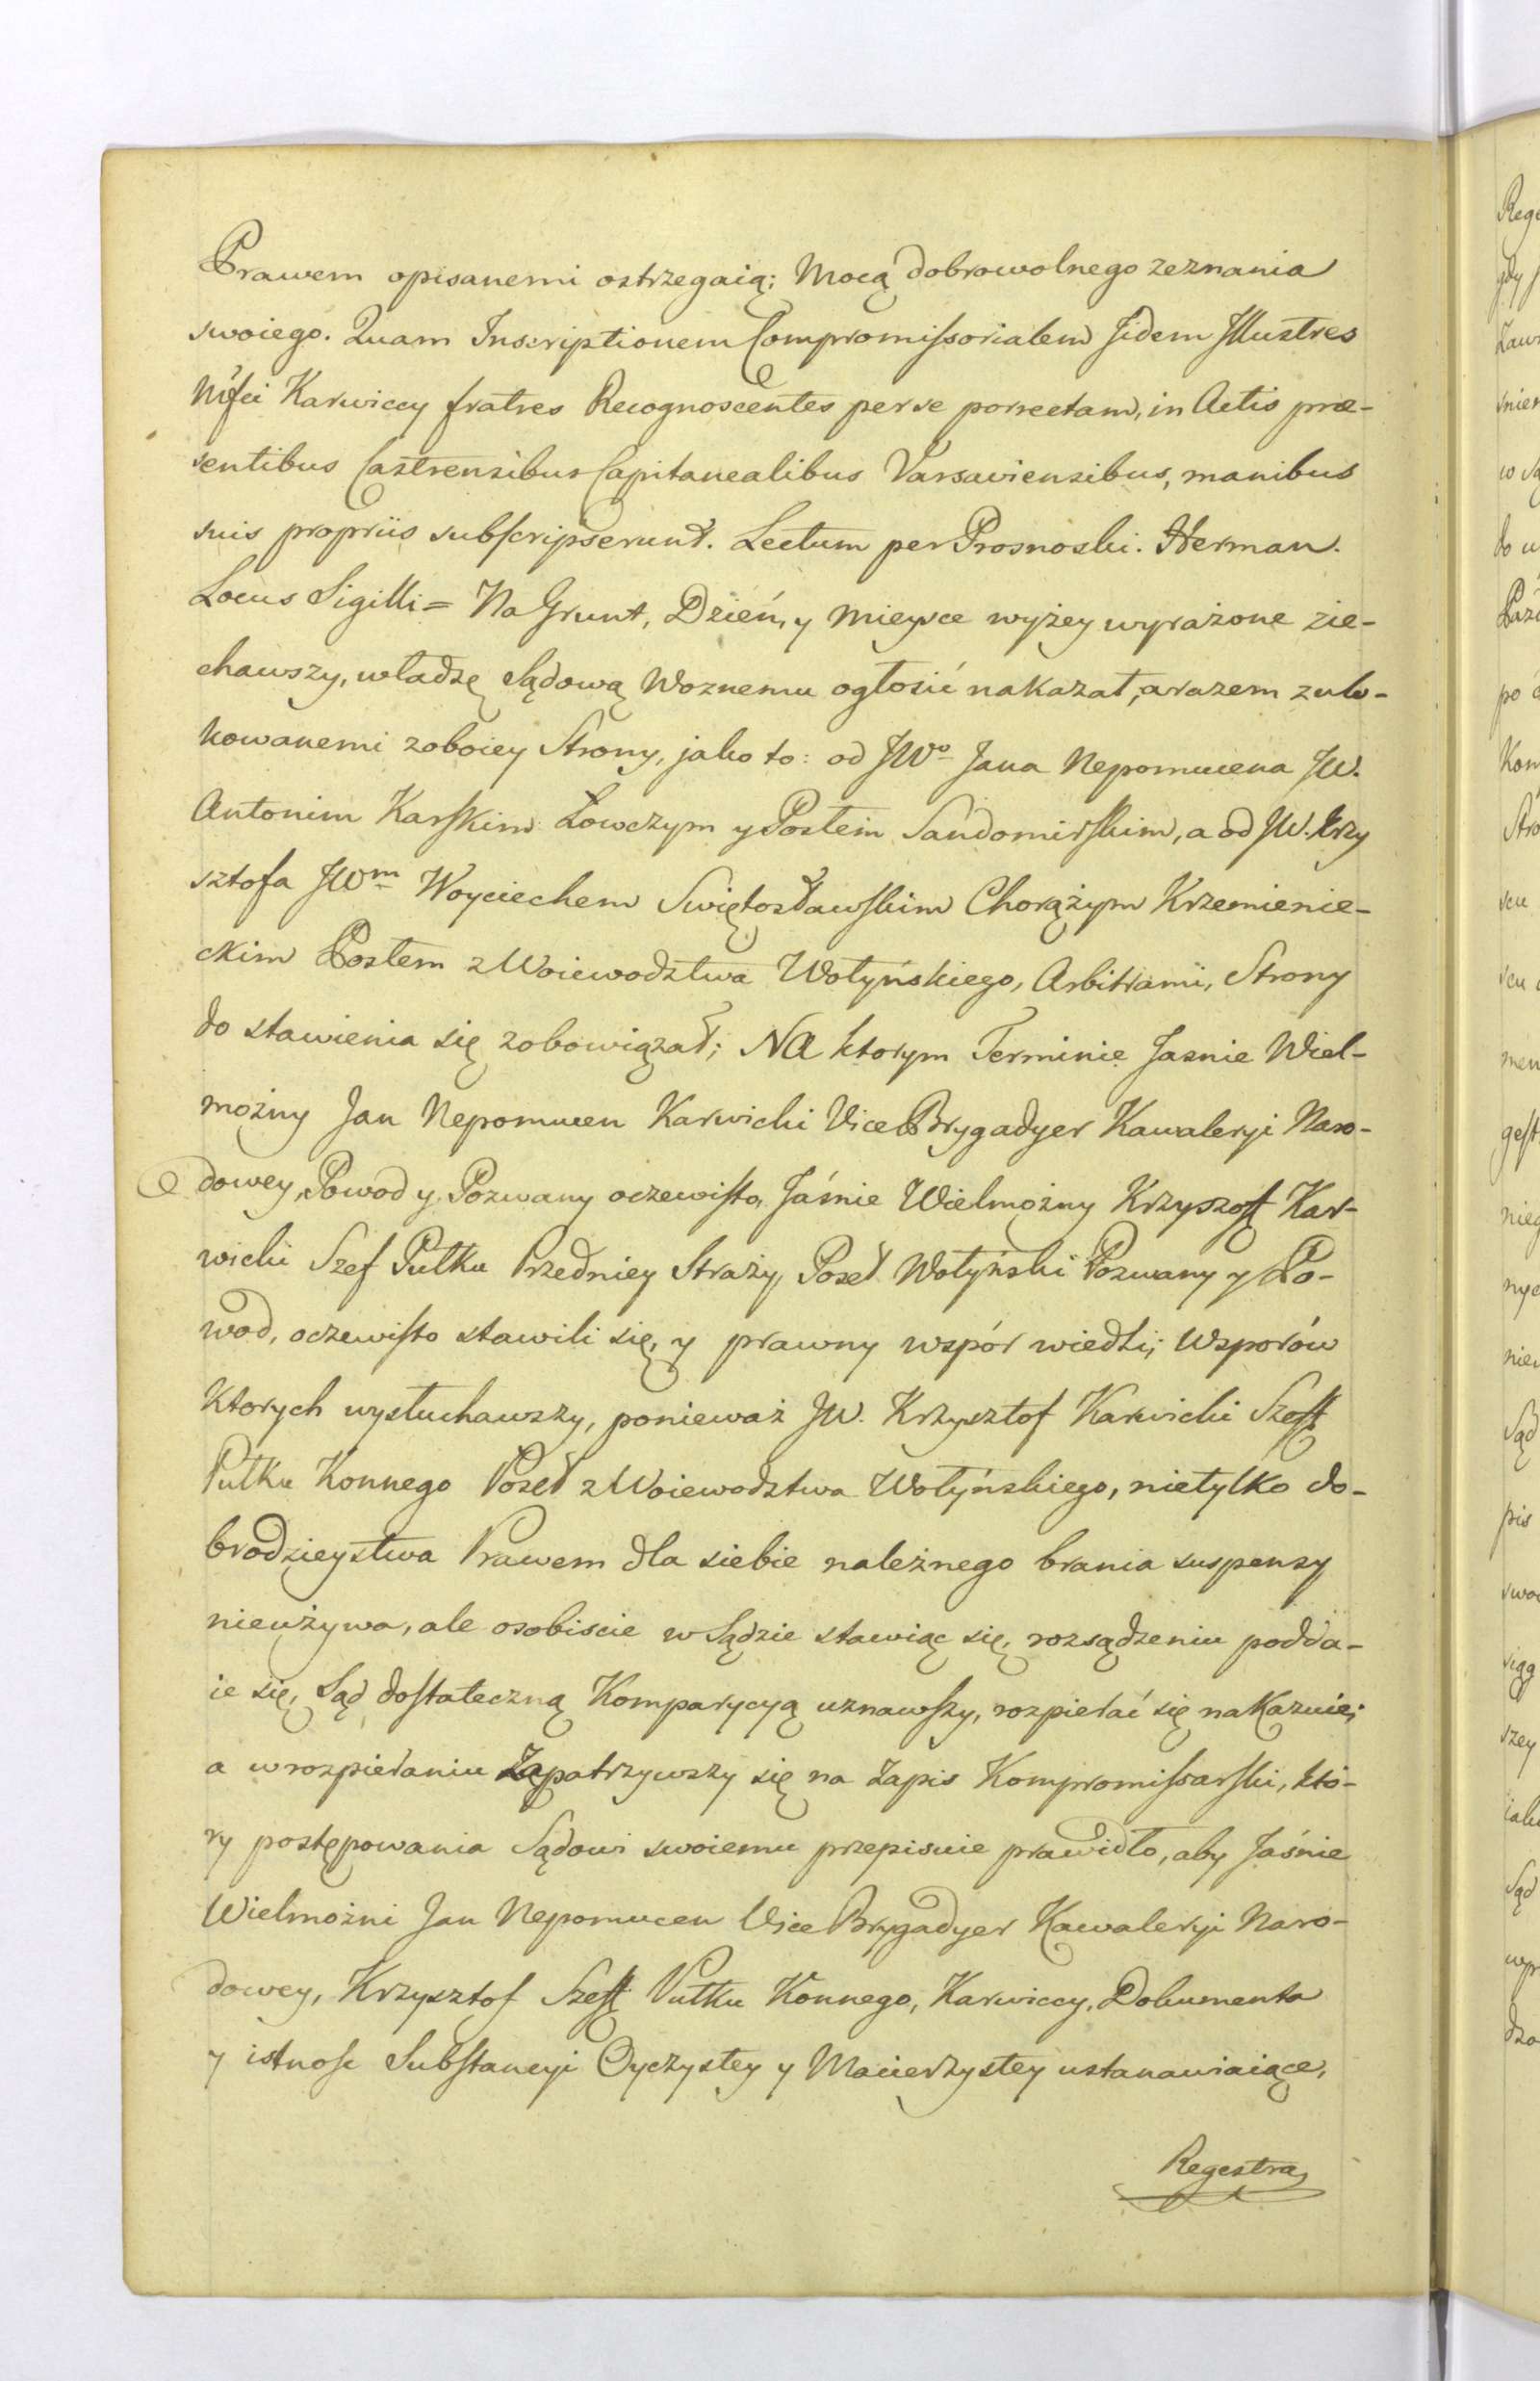 Prawem opisanemi ostrzegaią; Mocą dobrowolnego zeznania
swoiego. Quam Inscriptionem Compromiſsorialem Iidem Illustres
Mfici Karwiccy fratres Recognoscentes per se porrectam, in Actis prae-
sentibus Castrensibus Capitanealibus Varsaviensibus, manibus
suis propriis subſcripserunt. Lectum per Prosnoski. Herman.
Locus Sigilli = Na Grunt, Dzień, y Mieysce wyżey wyrażone zie-
chawszy, władzę Sądową Woznemu ogłosić nakazał, a razem z ulo-
kowanemi z oboiey Strony, jako to: od JWo Jana Nepomucena JW.
Antonim Karſkim Łowczym y Posłem Sandomirſkim, a od JW. Krzy
sztofa JWm Woyciechem Swiętosławſkim Chorążym Krzemienie-
ckim Posłem z Woiewodztwa Wołyńskiego, Arbitrami, Strony
do stawienia się zobowiązał; NA ktorym Terminie Jasnie Wiel-
możny Jan Nepomucen Karwicki Vice Brygadyer Kawaleryi Naro-
dowey, Powod y Pozwany oczewiſto, Jáśnie Wielmożny Krzysztoff Kar-
wicki Szef Pułku Przedniey Straży, Poseł Wołyński Pozwany y Po-
wod, oczewiſto stawili się, y prawny wspór wiedli; Wsporów
ktorych wysłuchawszy, ponieważ JW. Krzysztof Karwicki Szeff
Pułku Konnego Poseł z Woiewodztwa Wołyńskiego, nietylko do-
brodzieystwa Prawem dla siebie należnego brania suspensy
nieużywa, ale osobiscie w Sądzie stawiąc się, rozsądzeniu podda-
ie się, Sąd doſtateczną Komparycyą uznawſzy, rozpierać się nakazuie;
a w rozpieraniu Zapatrzywszy się na Zapis Kompromiſsarſki, któ-
ry postępowania Sądowi swoiemu przepisuie prawidło, aby Jaśnie
Wielmożni Jan Nepomucen Vice Brygadyer Kawaleryi Naro-
dowey, Krzysztof Szeff Pułku Konnego, Karwiccy, Dokumenta
y istnoſc Subſtancyi Oyczystey y Macierzystey ustanawiaiące,
Regestra